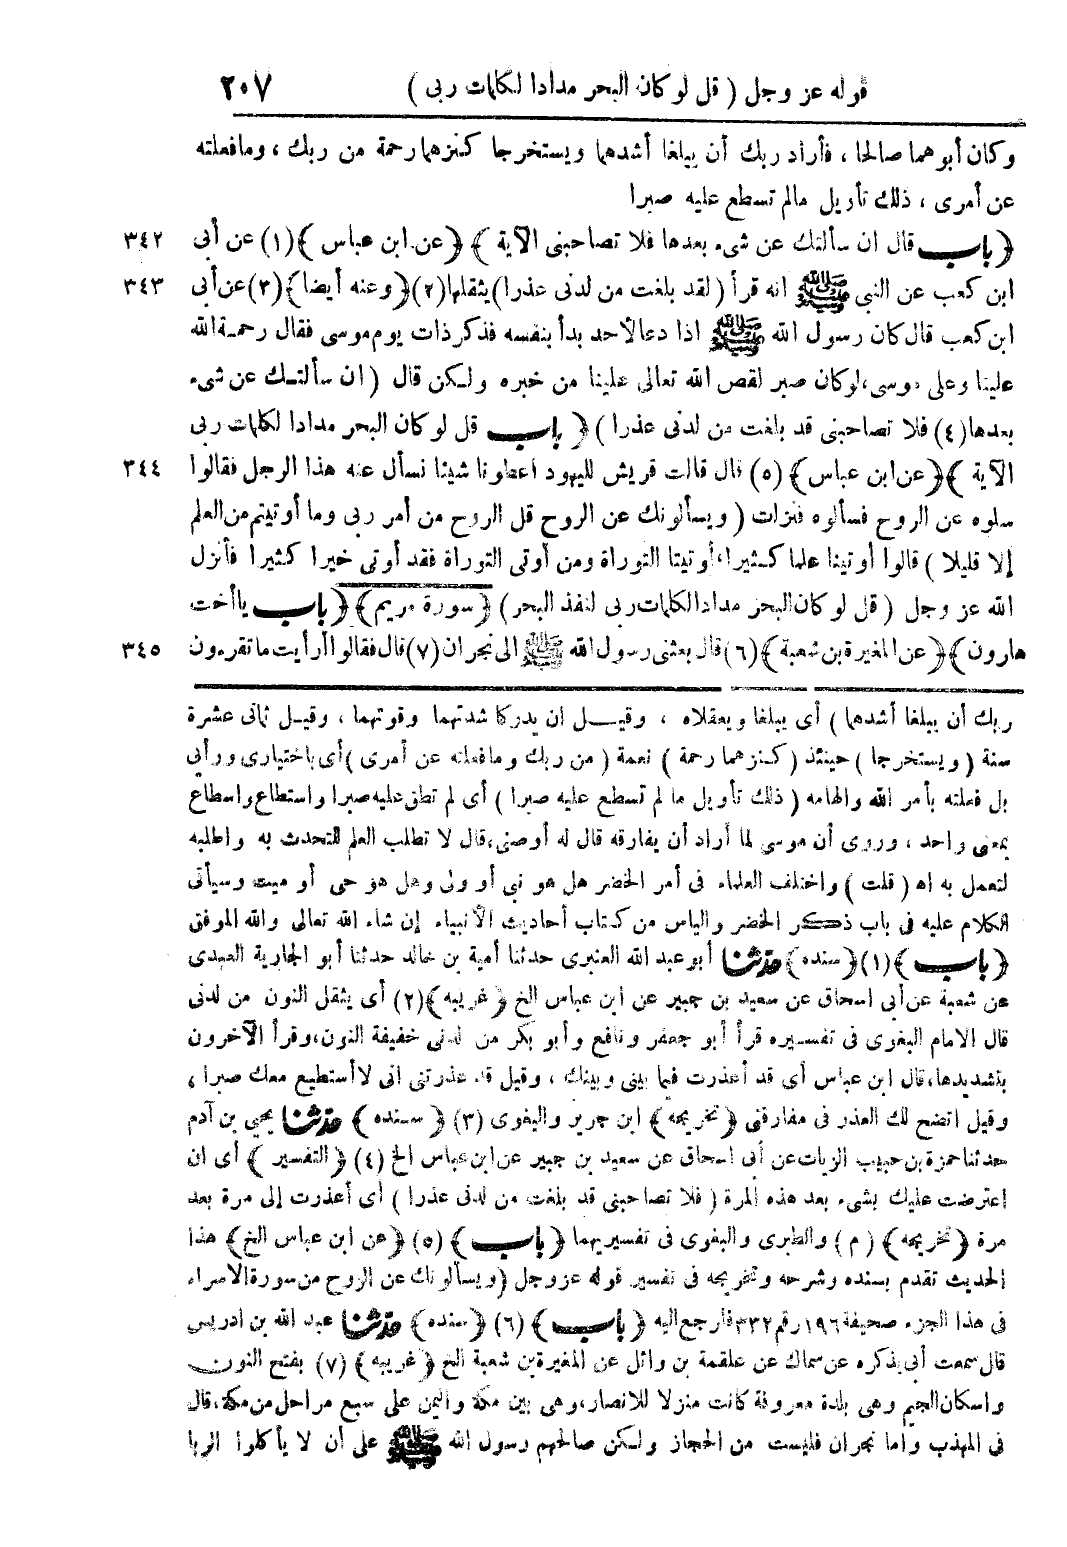 قوله عز وجل ( قل لو كان البحر مدادا لكلمات ربى ) ٢٠٧
وكان أبوهما صالحا ، فأراد ربك أن يبلغا أشدهما ويستخرجا كنزهما رحمة من ربك ، وما فعلته
عن أمرى ، ذلك تأويل مالم تسطع عليه صبرا
﴿ باب قال ان سألتك عن شىء بعدها فلا تصاحبنى الآية ﴾ ﴿ عن ابن عباس ﴾ (١) عن أبى ٣٤٢
ابن كعب عن النبى ﷺ انه قرأ ( لقد بلغت من لدنى عذرا) يثقلها (٢) ﴿ وعنه أيضا ﴾ (٣) عن أبى ٣٤٣
ابن كعب قال كان رسول الله ﷺ اذا دعا لأحد بدأ بنفسه فذكر ذات يوم موسى فقال رحمة الله
علينا وعلى موسى، لو كان صبر لقص الله تعالى علينا من خبره ولكن قال ( ان سألتك عن شىء
بعدها (٤) فلا تصاحبنى قد بلغت من لدنى عذرا ) ﴿ باب قل لو كان البحر مدادا لكلمات ربى
الآية ﴾ ﴿ عن ابن عباس ﴾ (٥) قال قالت قريش لليهود اعطونا شيئا نسأل عنه هذا الرجل فقالوا ٣٤٤
سلوه عن الروح فسألوه فنزلت ( ويسألونك عن الروح قل الروح من أمر ربى وما أوتيتم من العلم
إلا قليلا ) قالوا أوتينا علما كثيرا، أوتينا التوراة ومن أوتى التوراة فقد أوتى خيرا كثيرا فأنزل
الله عز وجل ( قل لو كان البحر مدادا لكلمات ربى لنفد البحر ) ﴿ سورة مريم ﴾ ﴿ باب ياأخت
هارون ﴾ ﴿ عن المغيرة بن شعبة ﴾ (٦) قال بعثنى رسول الله ﷺ الى نجران (٧) قال فقالوا أرأيت ما تقرءون ٣٤٥
ربك أن يبلغا أشدهما ) أى يبلغا ويعقلاه ، وقيل ان يدركا شدتهما وقوتهما ، وقيل ثمانى عشرة
سنة ( ويستخرجا ) حينئذ ( كنزهما رحمة ) نعمة ( من ربك وما فعلته عن أمرى ) أى باختيارى ورأيى
بل فعلته بأمر الله والهامه ( ذلك تأويل ما لم تسطع عليه صبرا ) أى لم تطق عليه صبرا واستطاع واسطاع
بمعنى واحد ، وروى أن موسى لما أراد أن يفارقه قال له أوصنى، قال لا تطلب العلم لتتحدث به واطلبه
لتعمل به اه ( قلت ) واختلف العلماء فى أمر الخضر هل هو نبى أو ولى وهل هو حى أو ميت وسيأتى
الكلام عليه فى باب ذكر الخضر والياس من كتاب أحاديث الأنبياء إن شاء الله تعالى والله الموفق
﴿ باب ﴾ (١) ﴿ سنده ﴾ حدثنا أبو عبد الله العنبرى حدثنا أمية بن خالد حدثنا أبو الجارية العبدى
عن شعبة عن أبى اسحاق عن سعيد بن جبير عن ابن عباس الخ ﴿ غريبه ﴾ (٢) أى يثقل النون من لدنى
قال الامام البغوى فى تفسيره قرأ أبو جعفر ونافع وأبو بكر من لدنى خفيفة النون، وقرأ الآخرون
بتشديدها، قال ابن عباس أى قد أعذرت فيما بينى وبينك ، وقيل قد عذرتنى انى لا أستطيع معك صبرا ،
وقيل اتضح لك العذر فى مفارقتى ﴿ تخريجه ﴾ ابن جرير والبغوى (٣) ﴿ سنده ﴾ حدثنا يحيى بن آدم
حدثنا حمزة بن حبيب الزيات عن أبى اسحاق عن سعيد بن جبير عن ابن عباس الخ (٤) ﴿ التفسير ﴾ أى ان
اعترضت عليك بشىء بعد هذه المرة ( فلا تصاحبنى قد بلغت من لدنى عذرا ) أى أعذرت إلى مرة بعد
مرة ﴿ تخريجه ﴾ ( م ) والطبرى والبغوى فى تفسيريهما ﴿ باب ﴾ (٥) ﴿ عن ابن عباس الخ ﴾ هذا
الحديث تقدم بسنده وشرحه وتخريجه فى تفسير قوله عز وجل ( ويسألونك عن الروح من سورة الاسراء
فى هذا الجزء صحيفة ١٩٦ رقم ٣٣٢ فارجع اليه ﴿ باب ﴾ (٦) ﴿ سنده ﴾ حدثنا عبد الله بن ادريس
قال سمعت أبى يذكره عن سماك عن علقمة بن وائل عن المغيرة بن شعبة الخ ﴿ غريبه ﴾ (٧) بفتح النون
واسكان الجيم وهى بلدة معروفة كانت منزلا للانصار، وهى بين مكة واليمن على سبع مراحل من مكة، قال
فى المهذب واما نجران فليست من الحجاز ولكن صالحهم رسول الله ﷺ على أن لا يأكلوا الربا